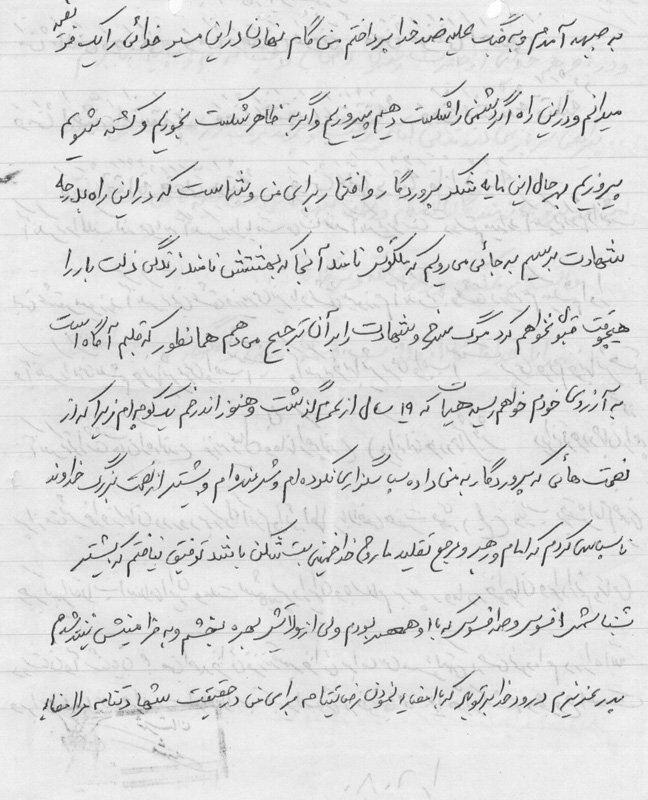 به جبهه آمدم و به جنگ علیه ضد خدا پرداختم من گام نهادن در این مسیر خدائی را یک فرد
میدانم و در این راه اگر دشمن را شکست دهیم پیروزیم و اگر به ظاهر شکست بخوریم و کشته شویم
پیروزیم بهر حال این مایه شکر پروردگار و افتخار برای من و شماست که در این راه بدرجه
شهادت برسیم به جائی می رویم که ملکوتش نامند آنجا که بهشتش نامند زندگی ذلت بار را
هیچوقت قبول نخواهم کرد مرگ سرخ و شهادت را بر آن ترجیح می دهم همانطور که قلبم آگاه است
به آرزوی خودم خواهم رسید هیهات که ۱۹ سال از عمرم گذشت و هنوز اندر خم یک کوچه ام زیرا که از
نعمت هائی که پروردگار به من داده سپاسگزاری نکرده ام و شرمنده ام و بیشتر از نعمت بزرگ خداوند
ناسپاسی کردم که امام و رهبر و مرجع تقلید ما روح خدا خمینی بت شکن باشد توفیق نیافتم که بیشتر
بشناسمش افسوس و صد افسوس که با او همعهد بودم ولی از ولایتش بهره بخشم و به فرامینش
پدر عزیزم درود خدا بر تو باد که با امضاء نمودن رضایتنامه برای من در حقیقت شهادتنامه مرا امضاء